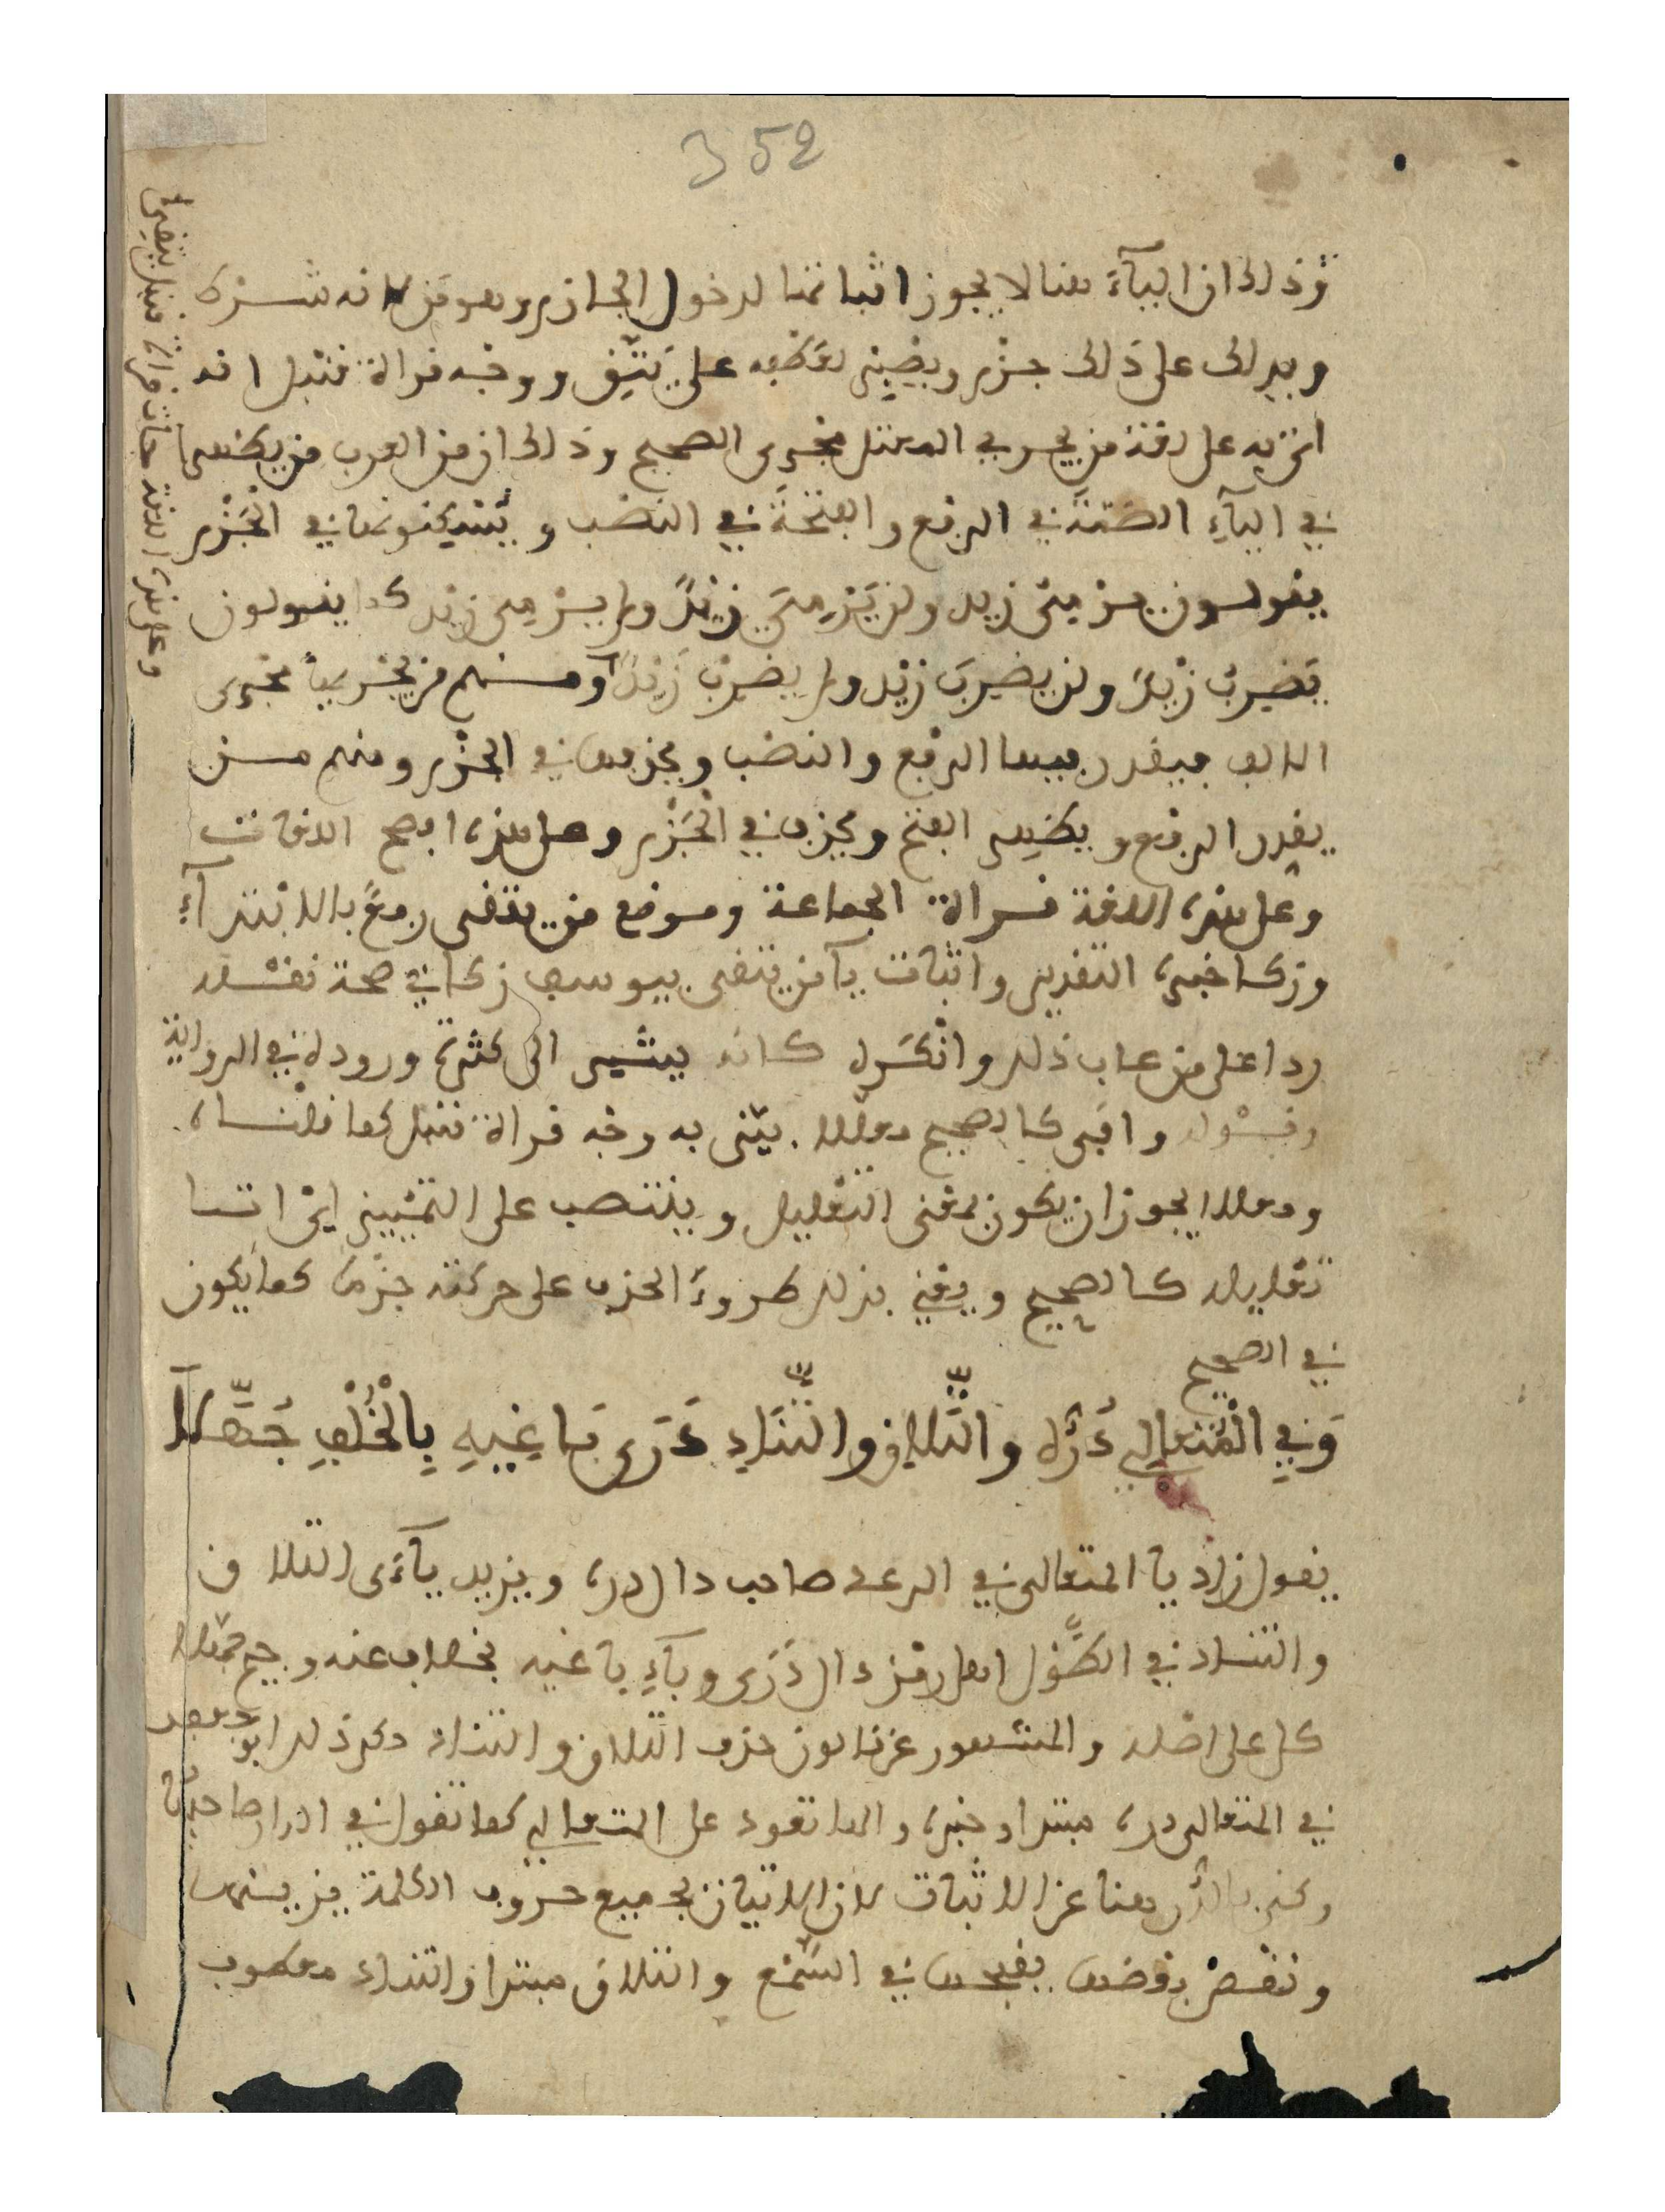 352
وذلك ان اليآء هنا لا يجوز اثباتها لدخول الجازم وهو من لانه شرط
وبدلك على ذلك جزم ويصبر بعطفه على يتق ووجه قراة قنبل انه
اتى به على لغة من يجري المعتل مجرى الصحيح وذلك ان من العرب من يظهر
في اليآء الضمة في الرفع والفتحة في النصب ويسكنونها في الجزم
يقولون يرمي زيد ولن يرمي زيد ولم يرمي زيد كما يقولون
يضرب زيد ولن يضرب زيد ولم يضرب زيد ومنهم من يجريها مجرى
الالف فيقدر فيها الرفع والنصب ويحذفها في الجزم ومنهم من
يقدر الرفع ويظهر الفتح ويحذف في الجزم وعلى هذه افصح اللغات
وعلى هذه اللغة قراة الجماعة وموضع من يتقى رفع بالابتدآء
وزكا خبره التقدير واثبات يآ من يتقى بيوسف زكا اي صحة نقله
ردا على من عاب ذلك وانكره كانه يشير الى كثرة وروده في الرواية
وقوله وافى كالصحيح معللا يعني به وجه قراة قنبل كما قلناه
ومعللا يجوز ان يكون بمعنى التعليل وينتصب على التمييز اي اتا
تعليله كالصحيح ويعني بذلك طروء الحذف على حركته جزما كما يكون
في الصحيح
وَفِي الْمُتَعَالِي دُرُّهُ وَالتَّلَاقِ وَالتَّنَادِ دَرَى بَاغِيهِ بِالْخُلْفِ جُهَّلَا
يقول زاد يا المتعالى في الرعد صاحب دال دره ويزيد يآءى التلاق
والتناد في الطول اهل رمز دال درى وبآء باغيه بخلاف عنه وجيم جهلا
كل على اصله والمشهور عن قالون حذف التلاق والتناد ذكر ذلك ابو جعفر
في المتعالى دره مبتدا وخبره والها تعود على المتعالي كما تقول في الدار صاحبها
وكنى بالدر هنا عن الاثبات لان الاتيان بجميع حروف الكلمة يزينها
ونقص بعضها يقبحها في السمع والتلاق مبتدا والتناد معطوف
وعلى هذه اللغة جات قراة قنبل يتقي